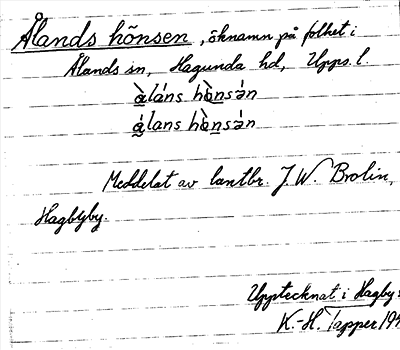 Ålands hönsen, öknamn på folket i
Ålands sn, Hagunda hd, Upps. l.
àláns hònsən
áləns hònsən
Meddelat av lantbr. J. W. Brolin,
Hagbyby.
Upptecknat i Hagby s
K.-H. Tapper 194